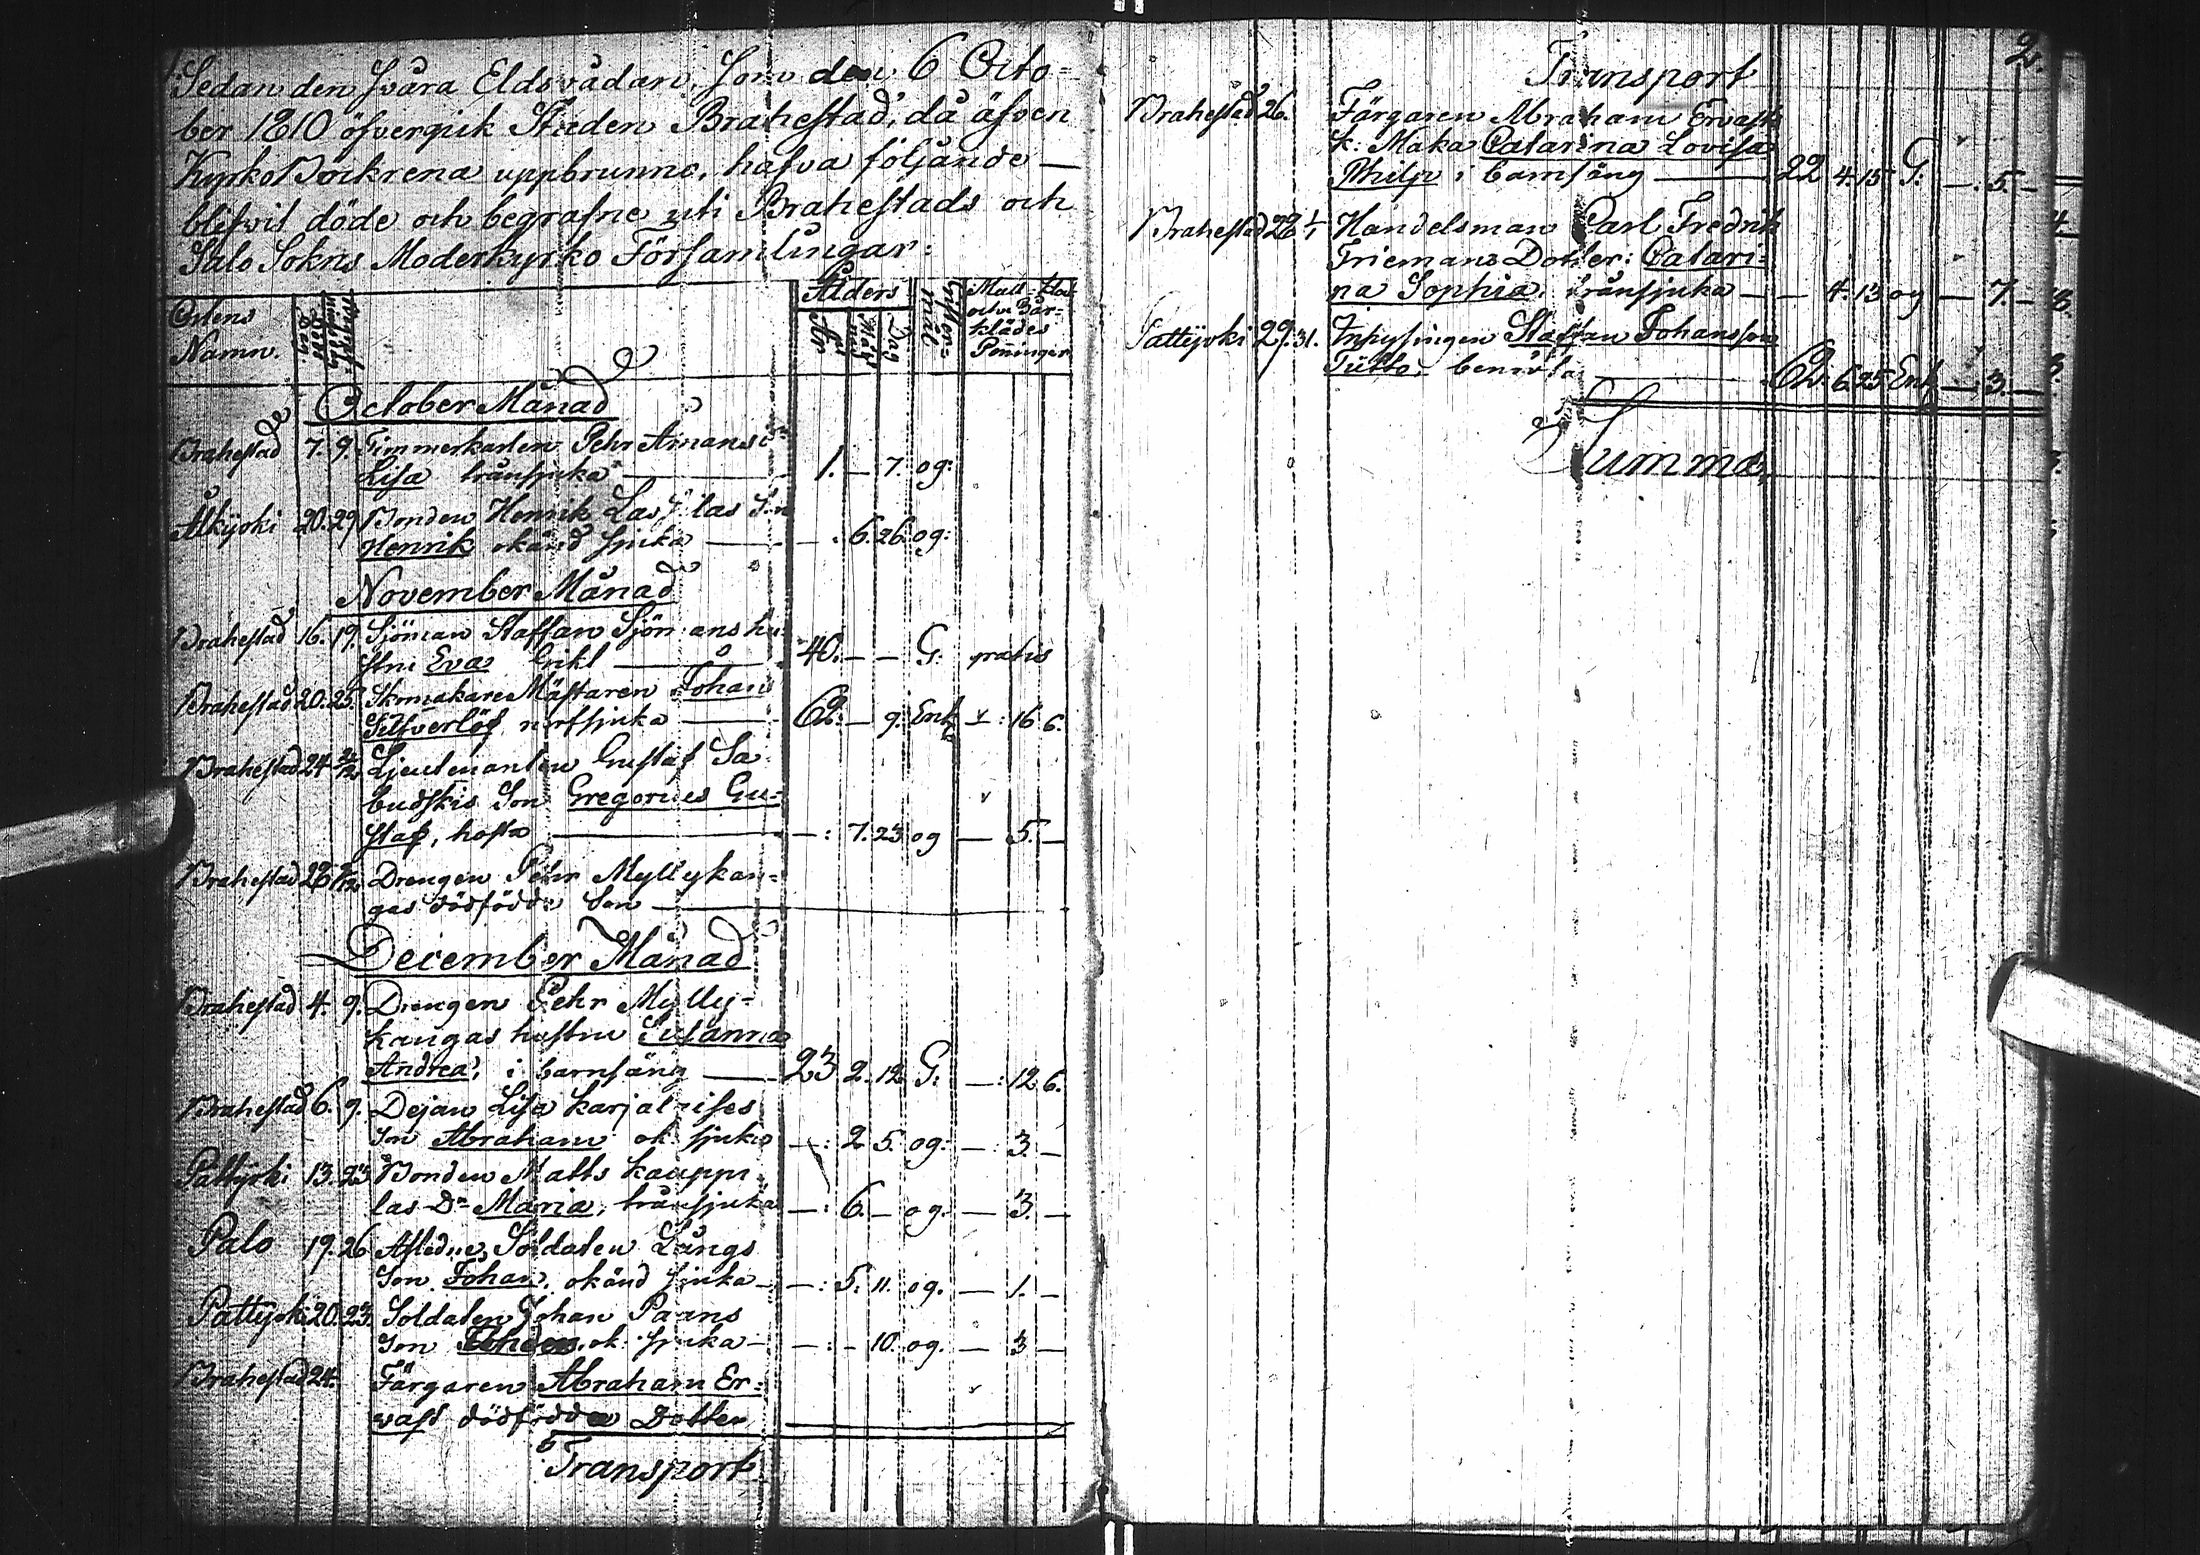 1.
Sedan den svåra Eldsvådan, som den 6 Octo=
ber 1810 öfvergick Staden Brahestad, då äfven
Kyrko Böckrena uppbrunno, hafva följande —
blifvit döde och begrafne uti Brahestads och
Salo Sokns Moderkyrko Församlingar:
Ortens Namn.
Ålders
År
Dag
Pänninger
October Månad
Brahestad 7. 9. Timmerkarlen Pehr Amans
Lisa tränsjuka — 1. — 7. og:
Alkyoki 20. 29 Bonden Henrik Lassilas Son
Henrik okänd sjuka — — : 6. 26. og:
November Månad
Brahestad 16. 19. Sjöman Staffan Sjömans hu=
stru Eva Gikt — 40. — — G: gratis
Brahestad 20. 25. Skomakare Mästaren Johan
Silfverlöf nerfsjuka — 62. — 9. Enk — : 16 6.
Brahestad 24 2/12 Ljeutenanten Gustaf Sa=
budskis Son Gregorius Gu=
staf, hosta — — : 7. 23 og — 5. —
Brahestad 28 2/12 Drengen Pehr Myllykan=
gas dödfödde Son —
December Månad
Brahestad 4. 9. Drengen Pehr Mylly=
kangas hustru Susanna
Andrea, i barnsäng — 23 2. 12 G: — : 12 6.
Brahestad 6. 9. Dejan Lisa Karjalaises
Son Abraham ok: sjuka — : 2 5. og: — 3. —
Pattijoki 13. 23 Bonden Matts Kauppi
las Dr Maria, tränsjuka — : 6. — og. — 3. —
Palo 19. 26 Afledne Soldaten Långs
Son Johan, okänd sjuka — — : 5. 11. og. — 1. —
Pattijoki 20. 23. Soldaten Johan Paans
Son ok: sjuka — — : — 10. og. — 3 —
Brahestad 24. Färgaren Abraham Er=
vast dödfödda Dotter
Transport
2.
Transport
Brahestad 26. Färgaren Abraham Ervasts
k: Maka Catarina Lovisa
Philp i barnsäng — 22 4. 15 G: — : 5. —
Brahestad 28 1/1 Handelsman Carl Fredrik
Friemans Dotter: Catari=
na Sophia, tränsjuka — — 4. 13 og — 7. —
Pattijoki 29. 31. Inhysingen Staffan Johansson
Tutto, benröta — 62: 6. 25 Enk — : 3. —
Summa